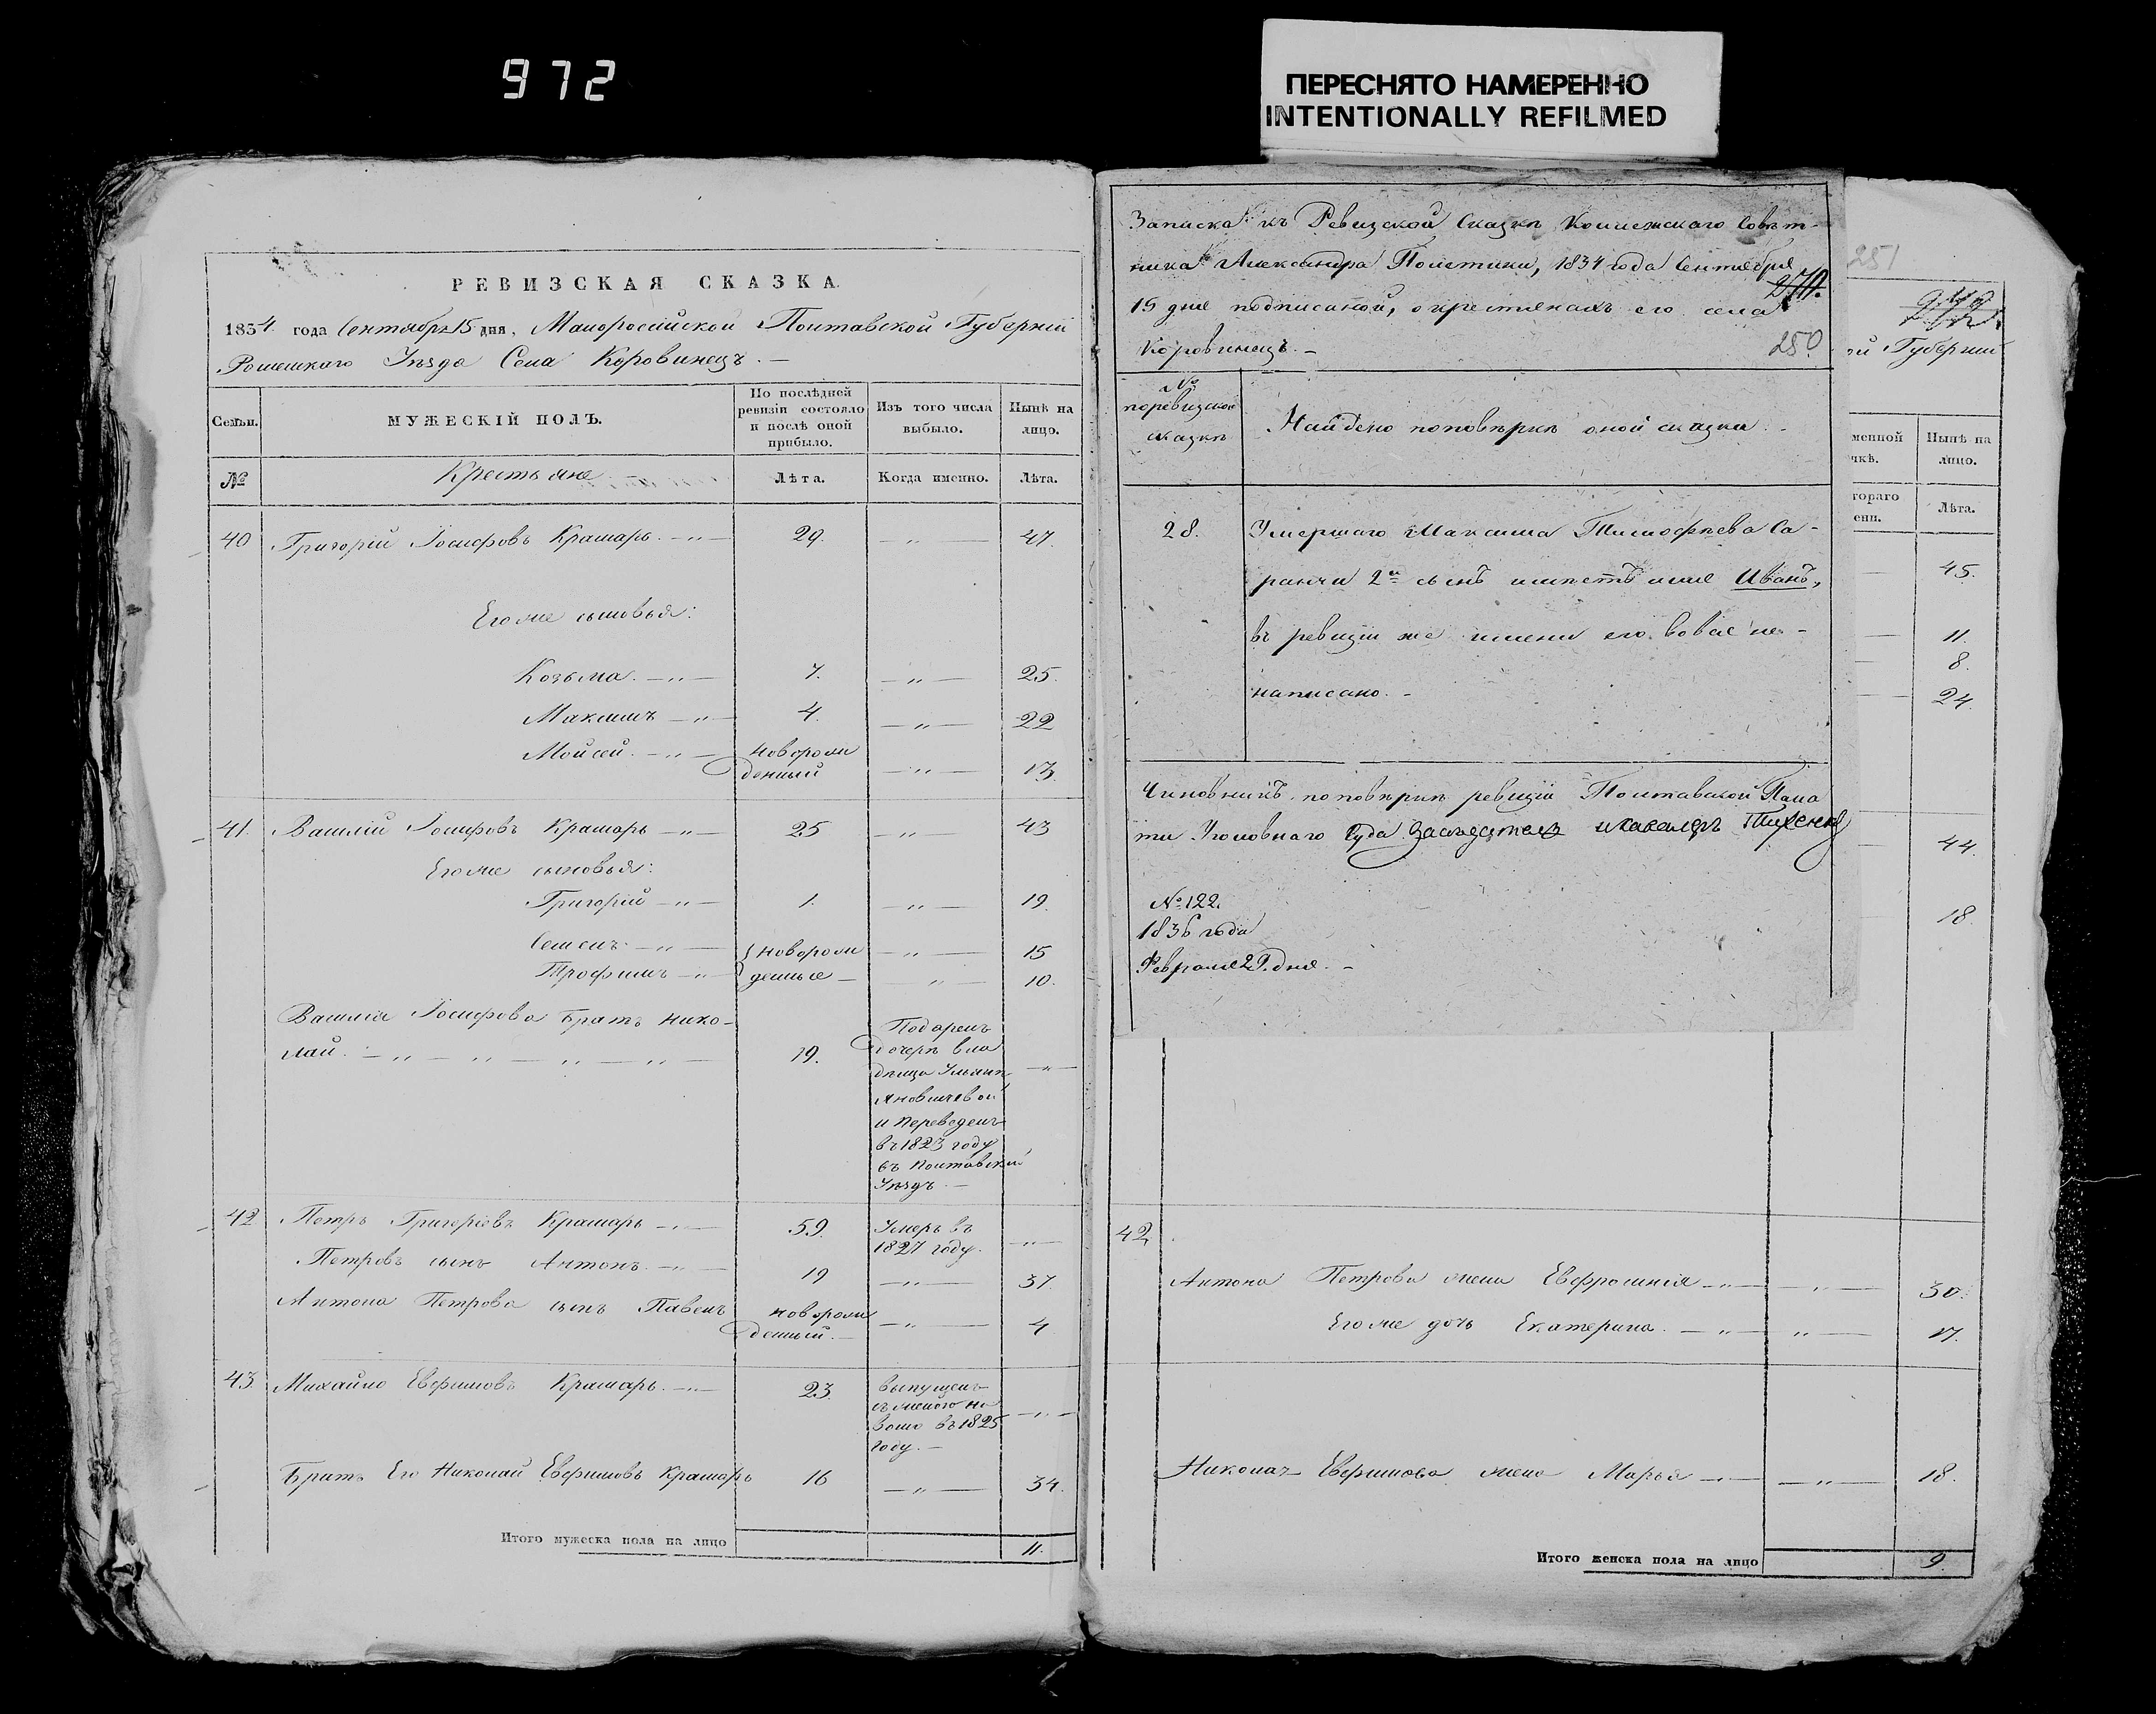 972
ПЕРЕСНЯТО НАМЕРЕННО
INTENTIONALLY REFILMED
РЕВИЗСКАЯ СКАЗКА.
1834 года Сентября 15 дня, Малоросійской Полтавской Губерніи
Роменского Уѣзда Села Коровинецъ. —
Семьи.
МУЖЕСКІЙ ПОЛЪ.
По послѣдней ревизіи состояло и послѣ оной прибыло.
Изъ того числа выбыло.
Нынѣ на лицо.
№
Крестьяне
Лѣта.
Когда именно.
Лѣта.
40 Григорій Іосифовъ Крамарь. 29. 47.
Его же сыновья:
Козьма. 7. 25.
Максимъ 4. 22
Мойсей. новорож
денный 13.
41. Василій Іосифовъ Крамарь 25 43
Его же сыновья:
Григорій 1. 19.
Семенъ новорож 15
Трофимъ денные 10.
Василія Іосифова Братъ Нико-
лай. 19.
Подаренъ
дочерѣ вла
дѣльца Ульянѣ
Яновичевой
и Переведенъ
въ 1823 году
въ Полтавскій
Уѣздъ. —
42 Петръ Григоріевъ Крамарь 59. Умеръ въ
1827 году.
Петровъ сынъ Антонъ. 19 37.
Антона Петрова сынъ Павелъ новорож
денный. 4
43. Михайло Евфимовъ Крамарь. 23. Выпущенъ
съ женою на
волю въ 1825
году. —
Братъ Его Николай Евфимовъ Крамарь 16 34.
Итого мужеска пола на лицо 11.
Записка къ Ревизской Сказкѣ Коллежскаго Совѣт-
ника Александра Полетики, 1834 года Сентября
15 дня подписаной, о крестьянахъ его села
Коровинецъ. —
250
№ по ревизской сказкѣ
Найдено по повѣркѣ оной сказки. —
28. Умершаго Максима Тимофѣева Са-
ранчи 2й сынъ имѣетъ имя Иванъ,
въ ревизіи же имени его вовсе не-
написано. —
Чиновникъ по повѣркѣ ревизіи Полтавской Пала
ти Уголовнаго Суда Заседатель и кавалеръ
№ 122.
1836 года
Февраля 29. дня. —
251
ой Губерніи
менной
чкѣ.
Нынѣ на
лицо.
тораго
ени.
Лѣта.
45.
11.
8.
24.
44.
18.
42.
Антона Петрова жена Евфросинія 30.
Его же дочь Екатерина. 17.
Николая Евфимова жена Марья 18.
Итого женска пола на лицо 9.